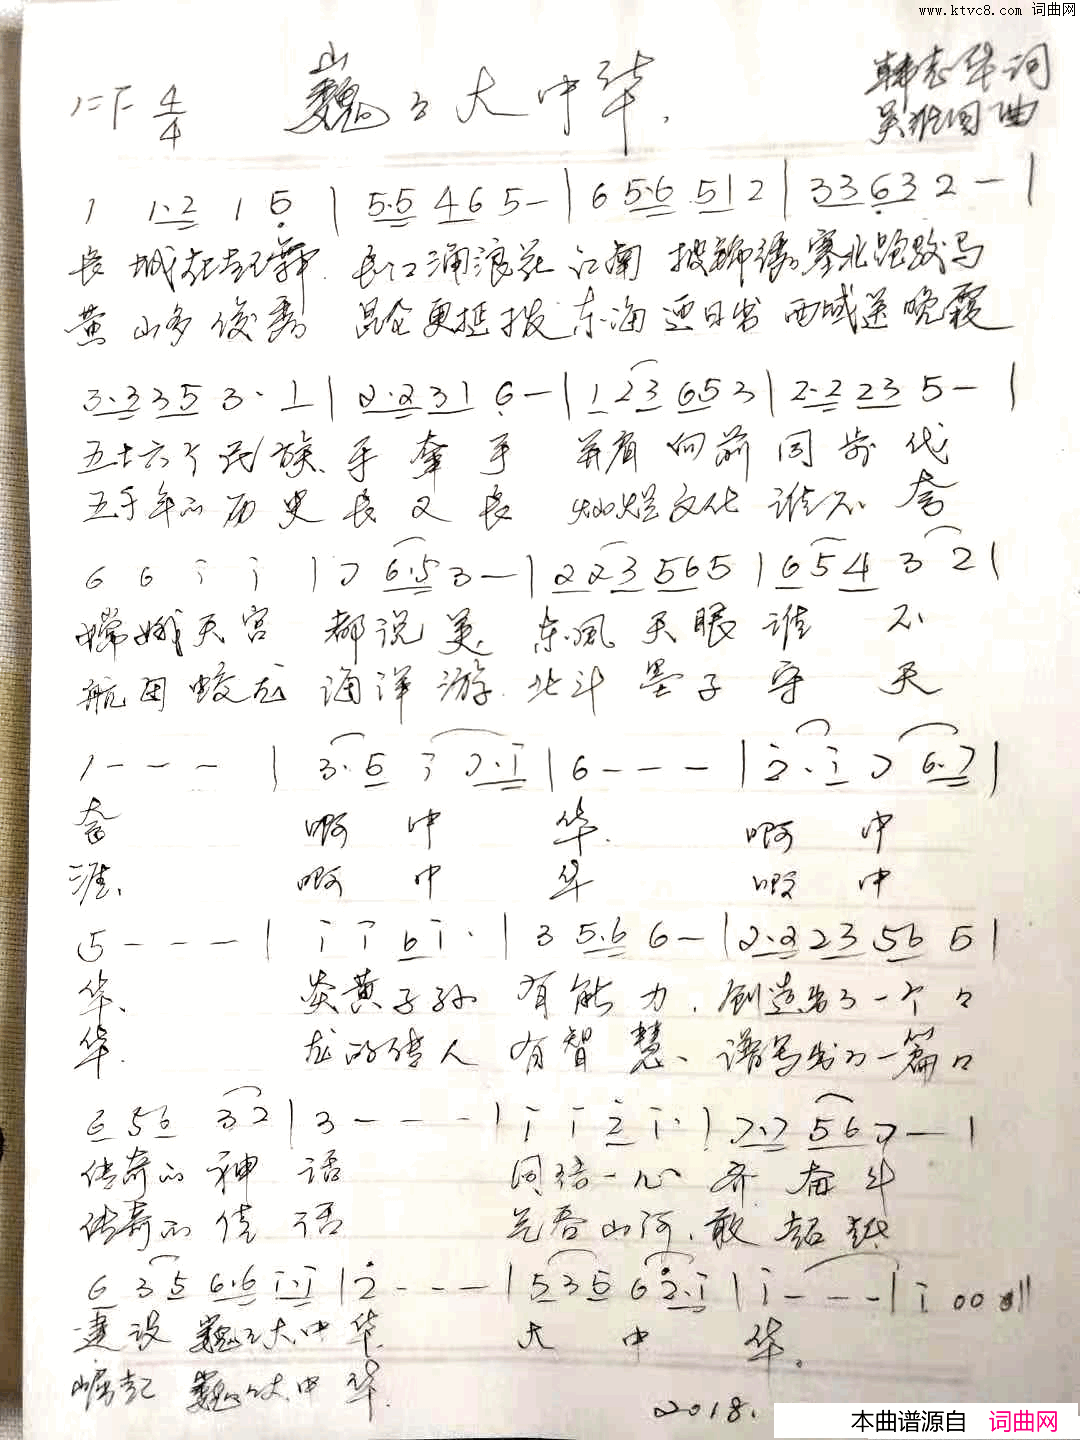 www.ktvc8.com 词曲网
1=F 4/4 巍々大中华 韩志华词
曲
1 1·2 1 5 | 5·5 4 6 5 - | 6 5·6 5 1 2 | 3 3 6 3 2 - |
长城在起舞 长江涌浪花 江南披锦绣 塞北跑骏马
黄山多俊秀 昆仑更挺拔 东海迎日出 西域送晚霞
3·3 3 5 3· 1 | 2·2 3 1 6 - | 1 2 3 6 5 3 | 2·2 2 3 5 - |
五十六个民族 手牵手 并肩向前同步伐
五千年的历史长又长 灿烂文化谁不夸
6 6 i i | 7 6·5 3 - | 2 2 3 5 6 5 | 6 5 4 3 2 |
嫦娥天宫都说美 东风天眼谁不
航母蛟龙海洋游 北斗墨子守天
1 - - - | 3·5 i 7·i | 6 - - - | 2·i 7 6·7 |
夸 啊中华 啊中
涯 啊中华 啊中
5 - - - | i i 6 i· | 3 5·6 6 - | 2·2 2 3 5 6 5 |
华 炎黄子孙有能力 创造出了一个々
华 龙的传人有智慧 谱写出了一篇々
6 5 6 3 2 | 3 - - - | i i 2 i· | 7·7 5 6 7 - |
传奇的神话 同语一心齐奋斗
传奇的佳话 气吞山河敢超越
6 3 5 6·6 i·i | 2 - - - | 5 3 5 6 2·i | i - - - | i 0 0 0 ‖
建设巍々大中华 大中华
崛起巍々大中华
2018.
本曲谱源自 词曲网